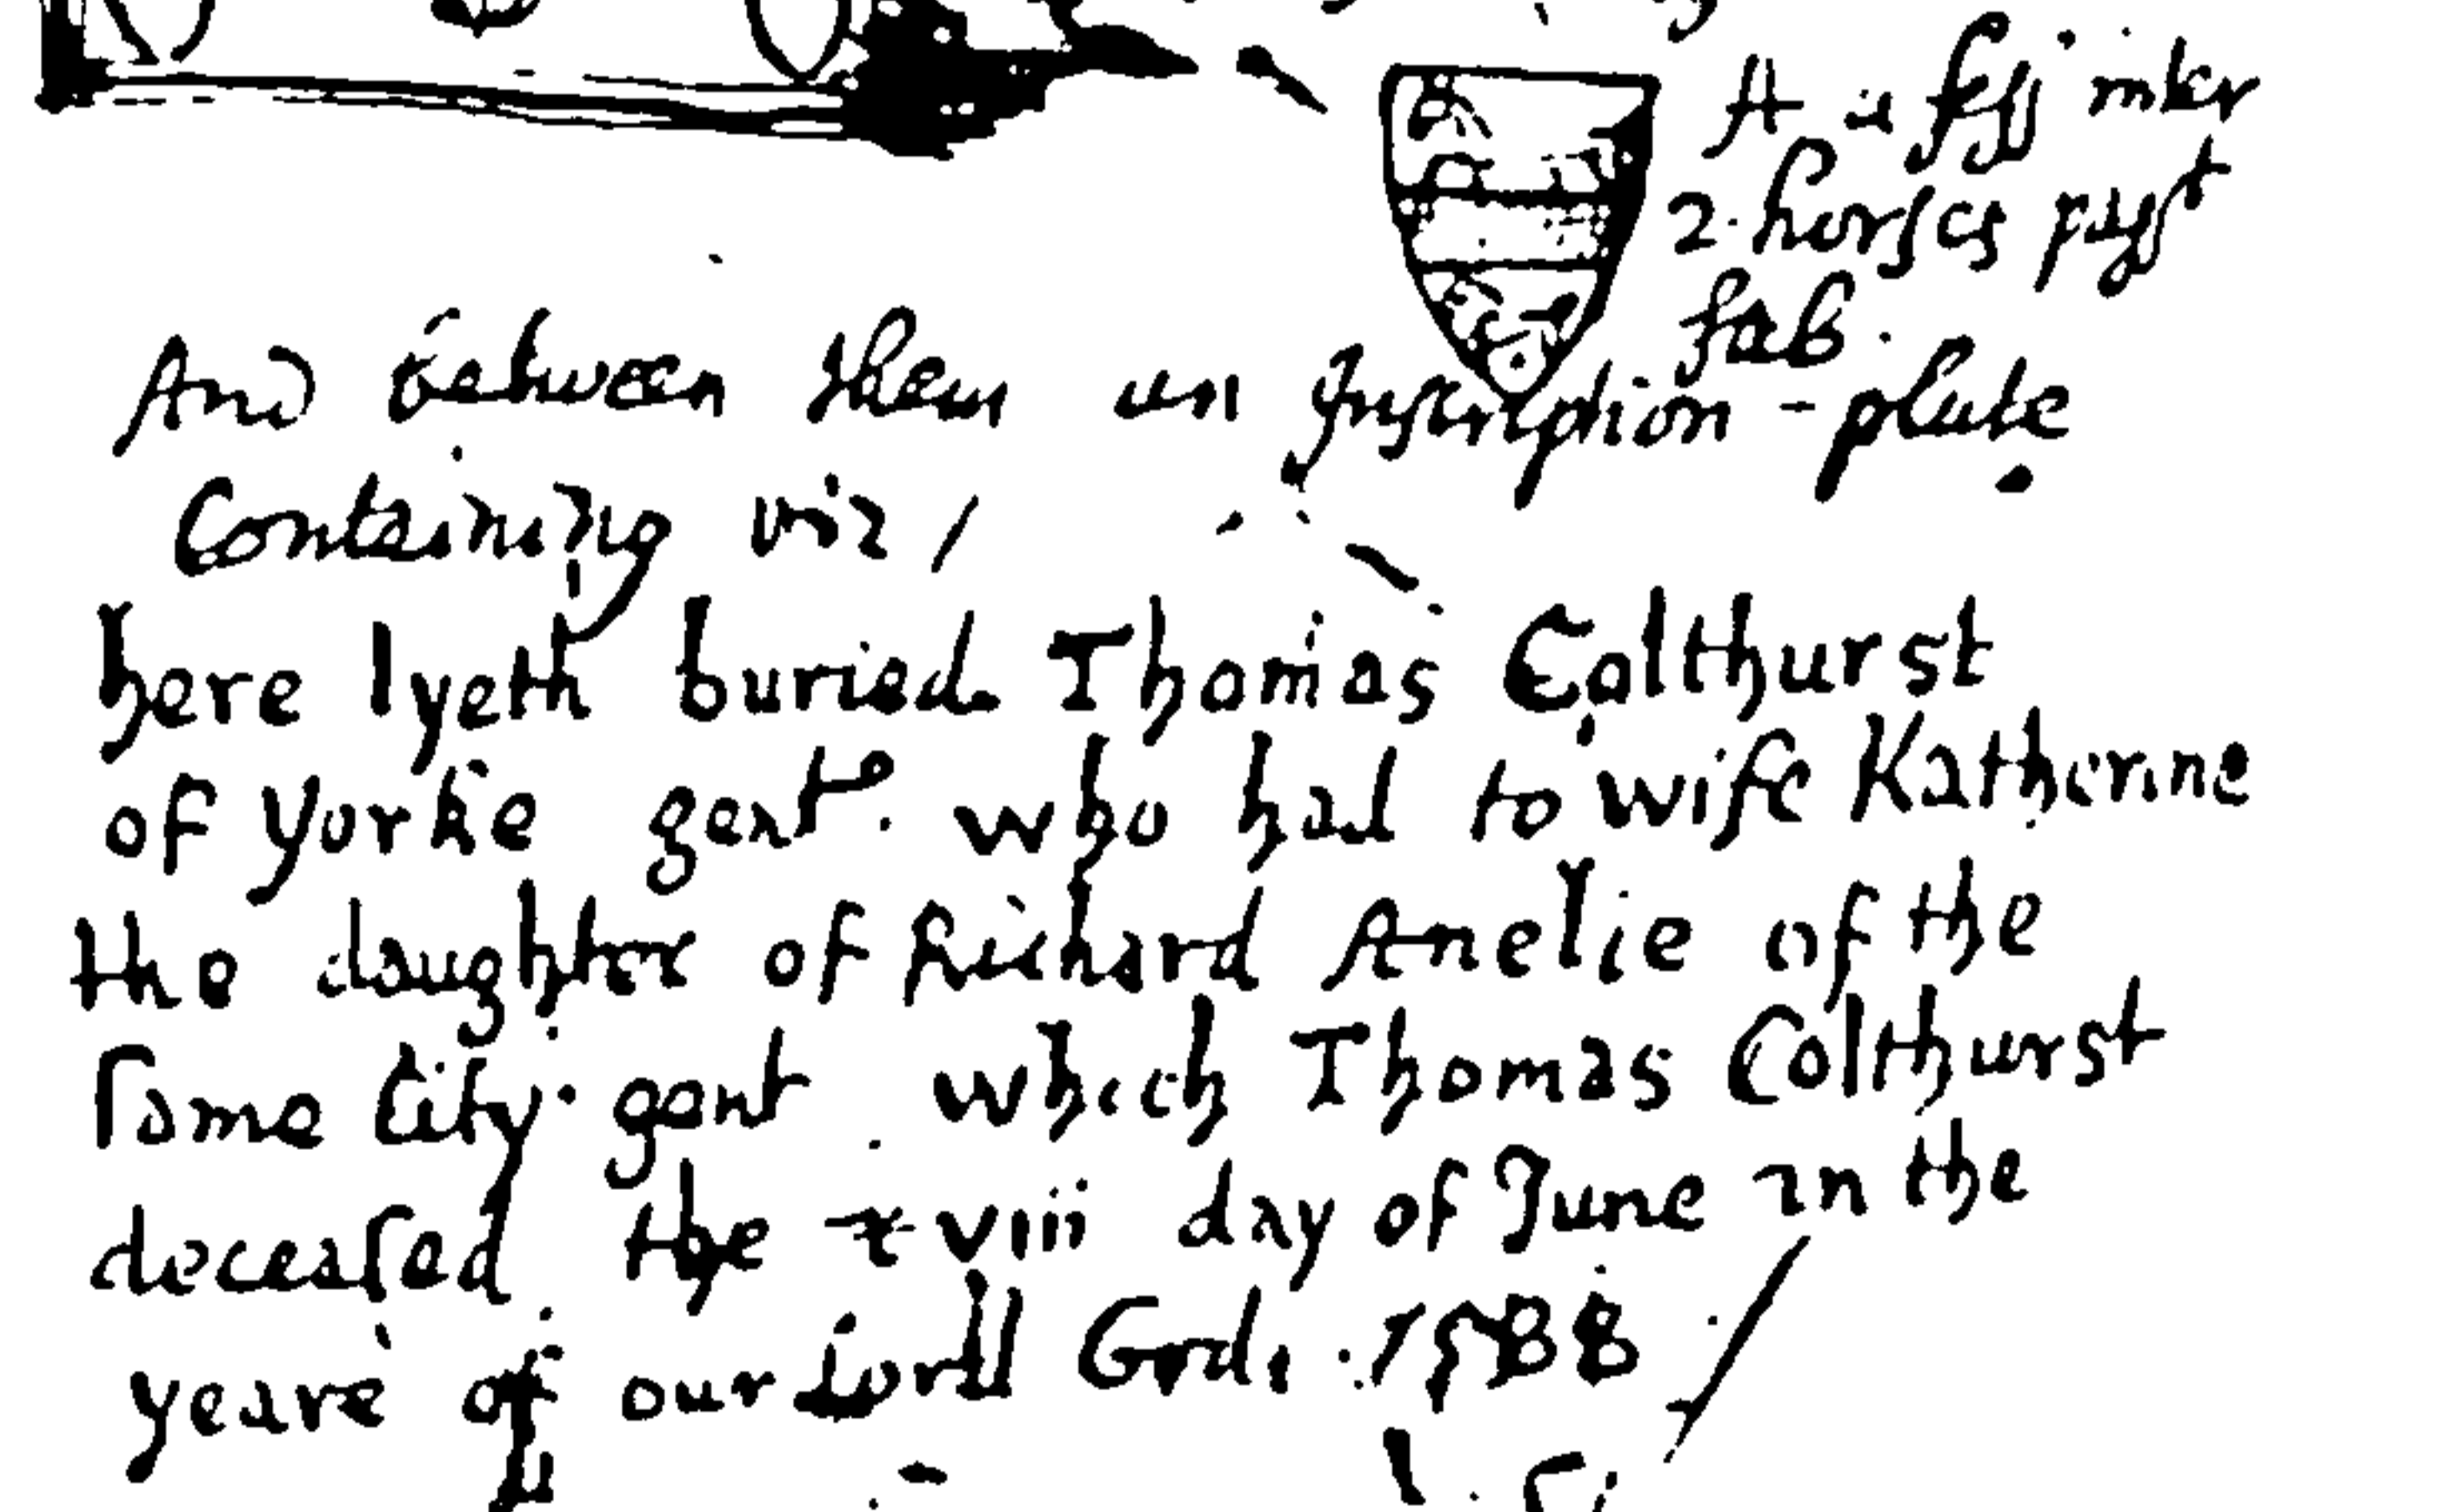 A a fess inter
2. horses past
sab.
And between them an Inscription - plate
Containing viz /
here lyeth buried Thomas Colthurst
of Yorke gent. who had to wife Katherine
the daughter of Richard Anelie of the
same City. gent which Thomas Colthurst
deceased the xviii day of June in the
yeare of our Lord God : 1588 /